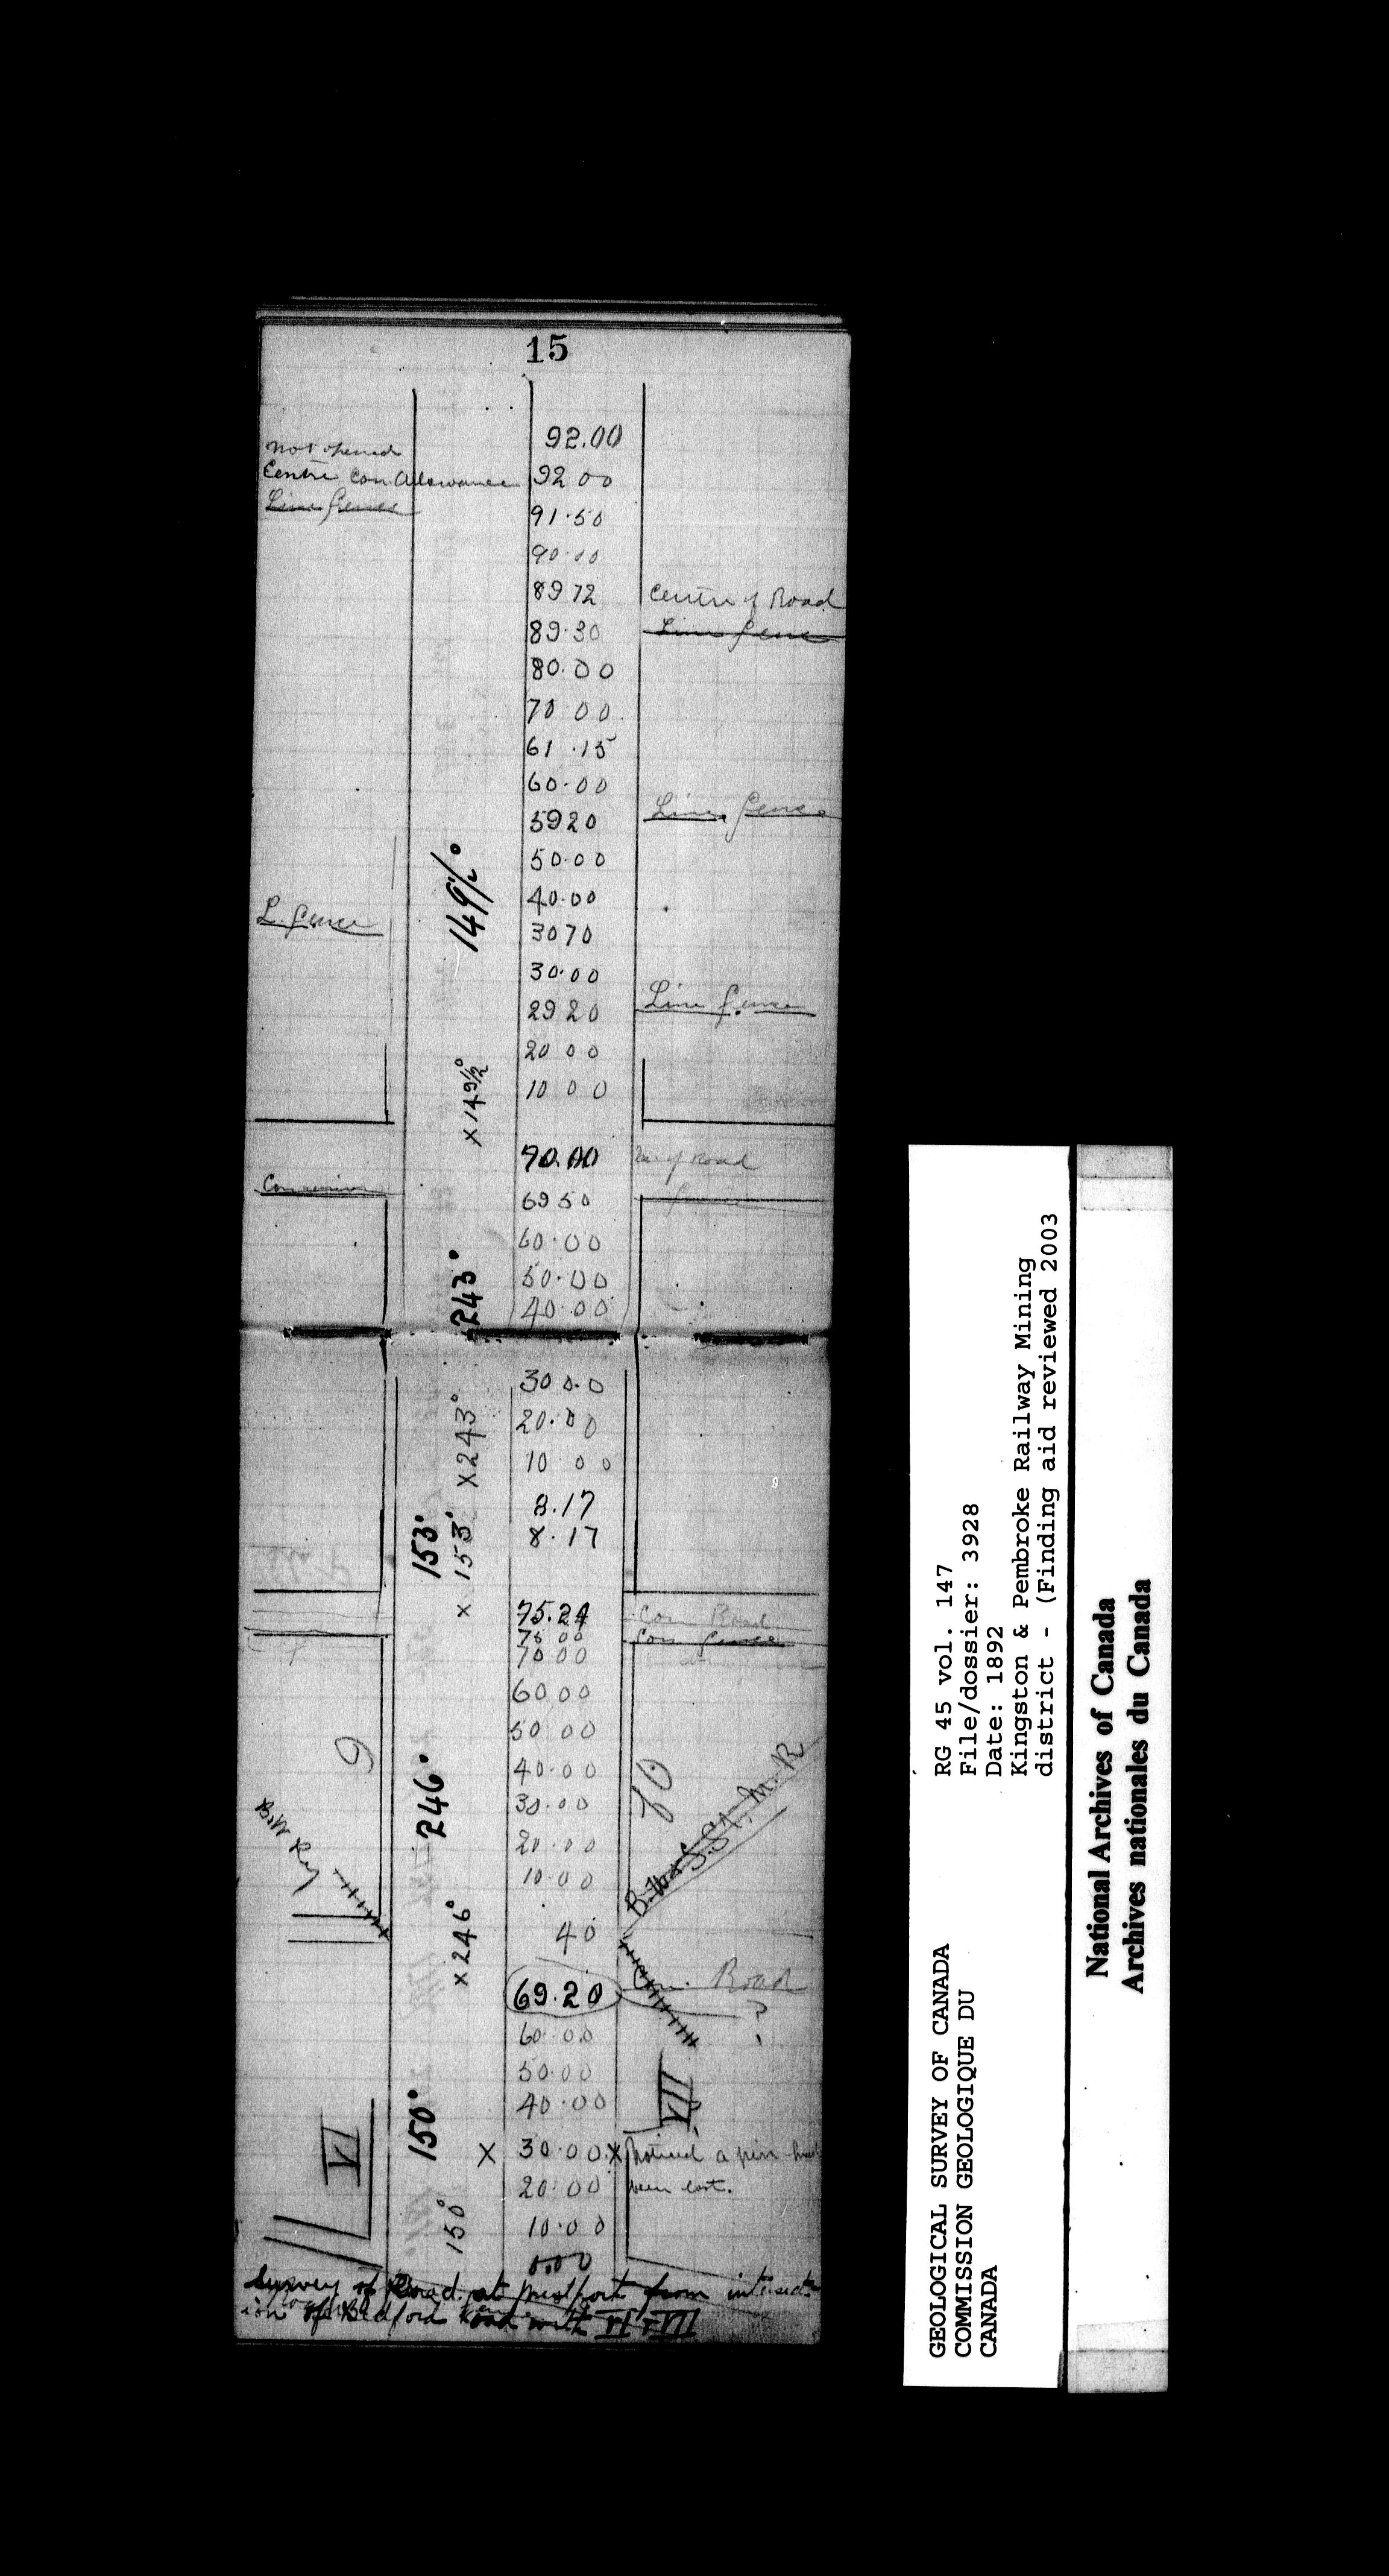 15
92.00
not opened
Centre Con Allowance 92 00
Line fence
91.50
90.00
89 72 Centre of Road
89.30 Line fence
80.00
70 00
61.15
60.00
59 20 Line fence
50.00
149½°
40.00
L. fence
30 70
30.00
29 20 Line fence
20 00
x 149½°
10 00
70.00 Road
Concession
69 50 fence
60.00
50.00
243°
40.00
30 0.0
20.00
x 243°
10 00
8.17
153°
x 153°
8.17
75.24 Con Road
75 00 Con fence
70 00
60 00
50 00
9
246°
40.00
10
30.00
B.W. & S.St. M. R
B.W Ry
20.00
10.00
x 246°
40
69.20 Con. Road
?
60.00
50.00
VII
40.00
150°
VI
X 30.00 X Noticed a pin had
20.00 been lost.
150°
10.00
0.00
Survey of Road at Westport from intersect-
ion of Bedford Road with VI & VII
RG 45 vol. 147
File/dossier: 3928
Date: 1892
Kingston & Pembroke Railway Mining
district - (Finding aid reviewed 2003
GEOLOGICAL SURVEY OF CANADA
COMMISSION GEOLOGIQUE DU
CANADA
National Archives of Canada
Archives nationales du Canada